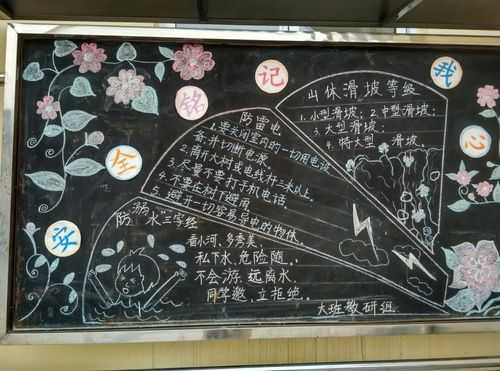 安全铭记我心
防雷电
1.要关闭室内的一切用电设
备,并切断电源
2.离开大树或电线杆二米以上。
3.尽量不要打手机电话
4.不要在树下避雨
5.避开一切容易导电的物体。
山体滑坡等级
1.小型滑坡;2.中型滑坡;
3.大型滑坡;
4.特大型 滑坡。
防溺水三字经
看小河、多秀美、
私下水、危险随、
不会游、远离水、
同学邀、立拒绝。
大班教研组